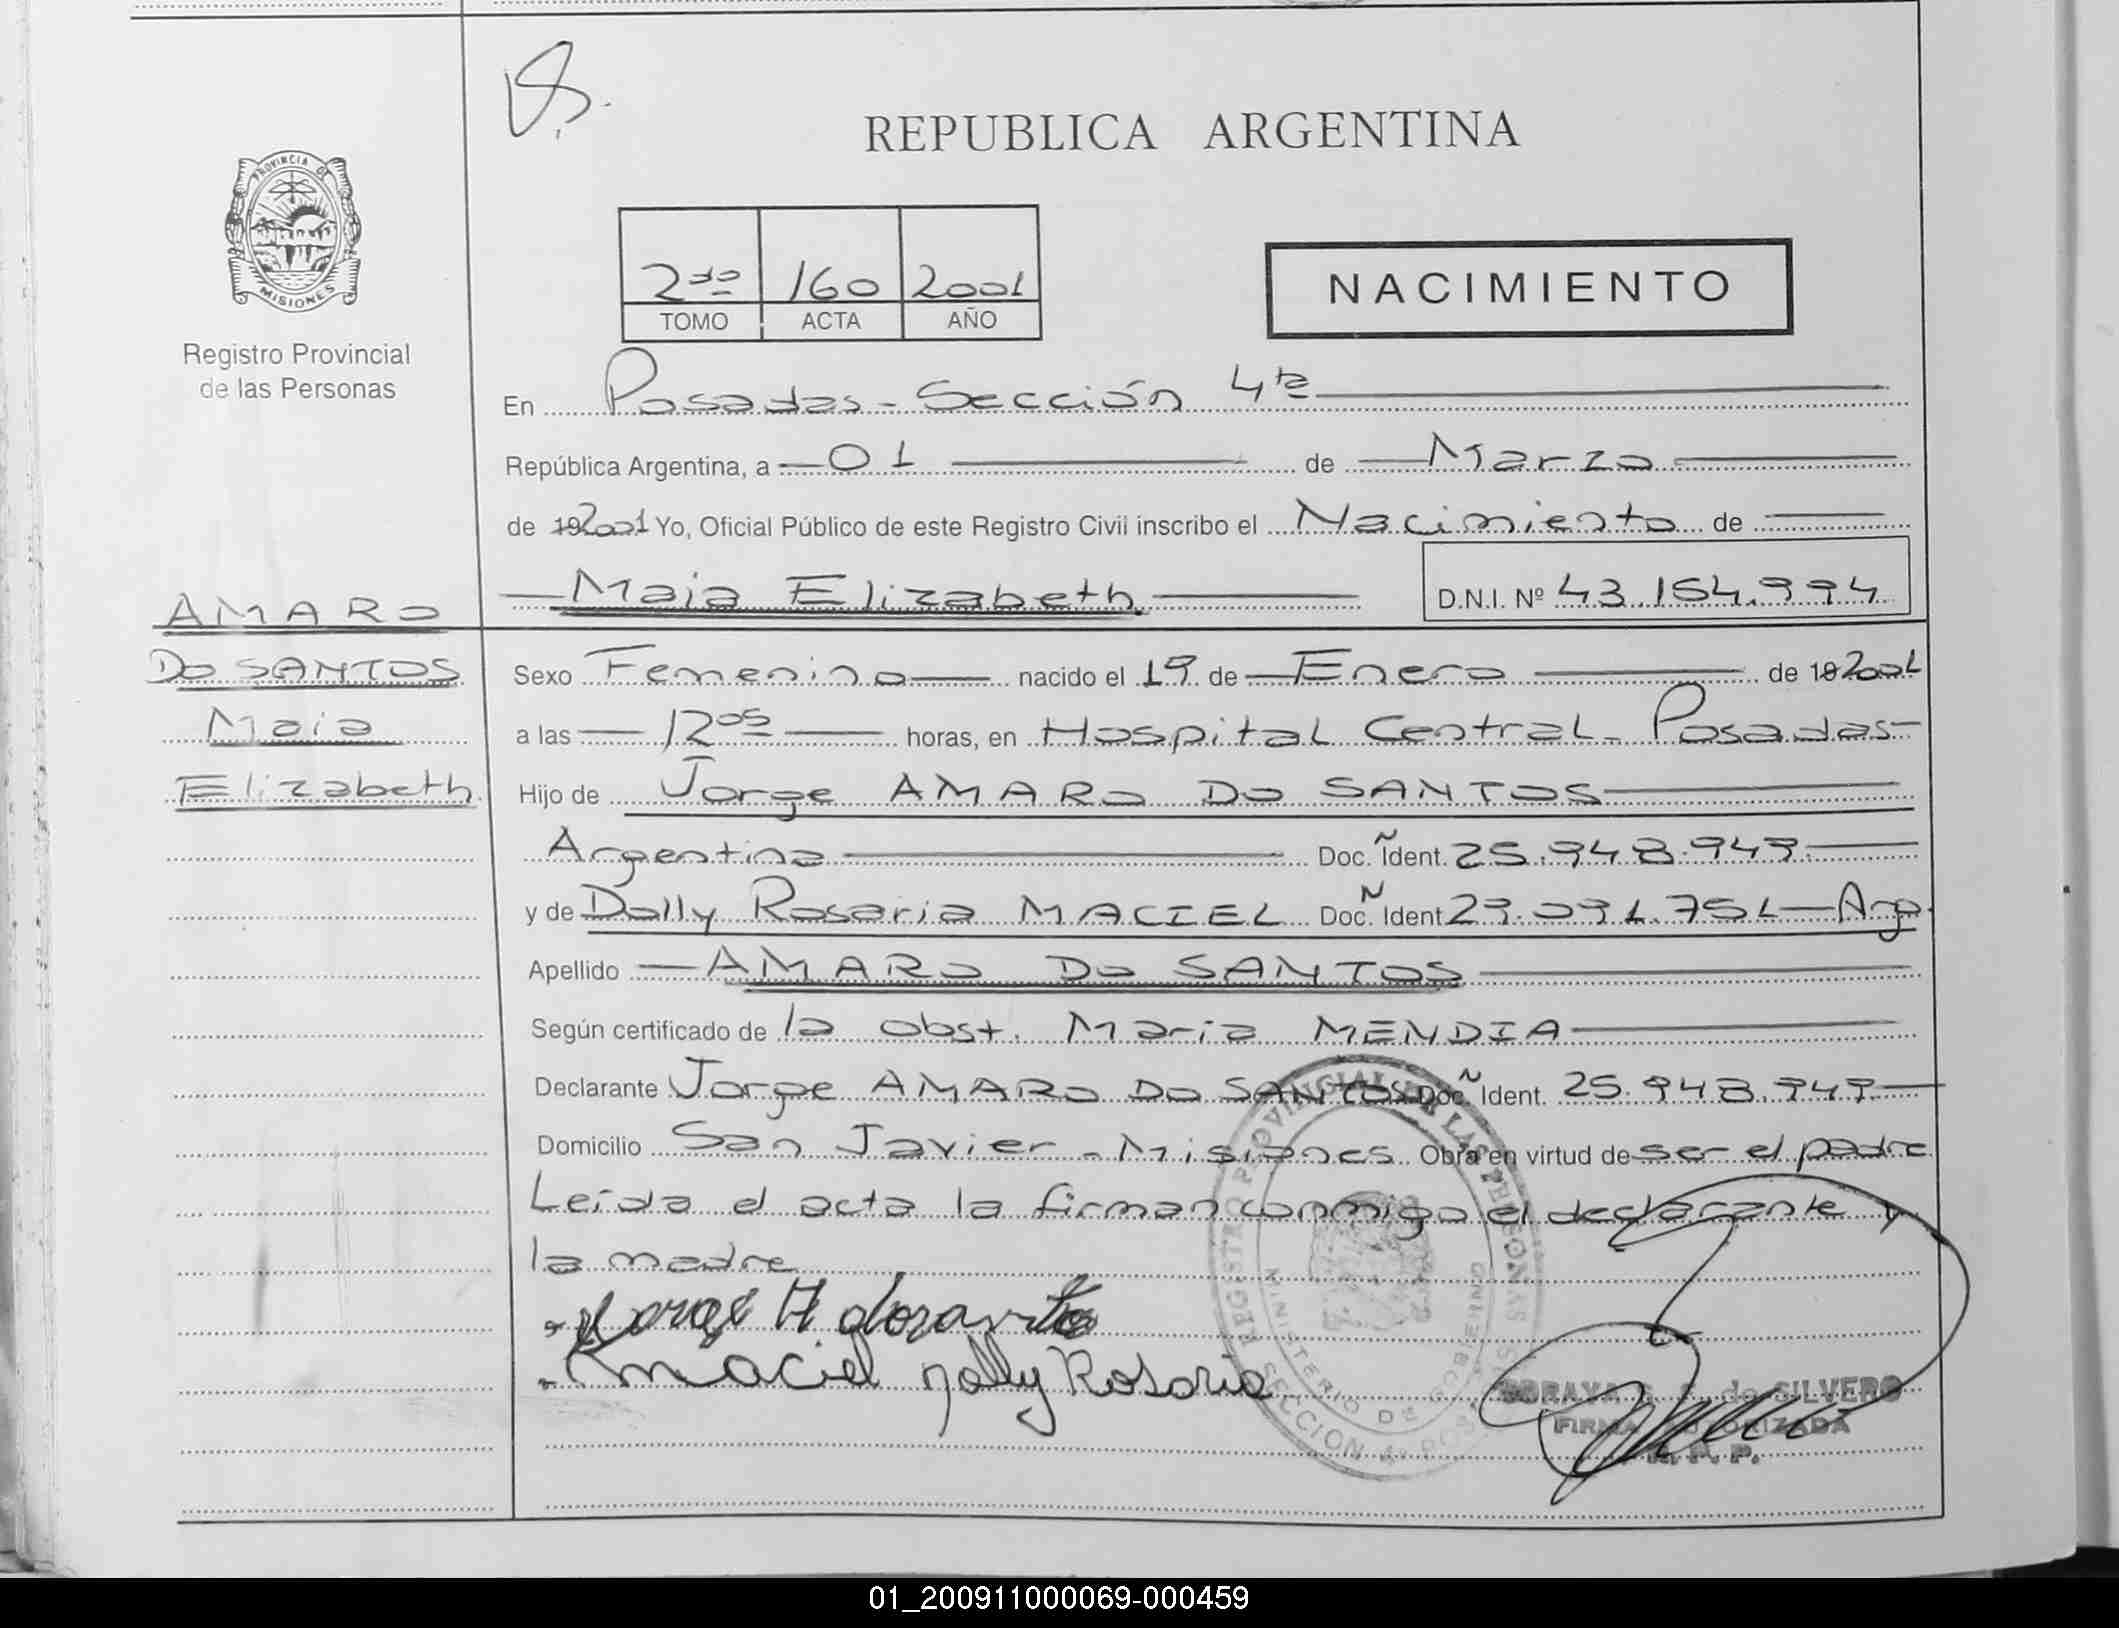 REPUBLICA ARGENTINA
PROVINCIA DE
MISIONES
Registro Provincial
de las Personas
2do 160 2001
TOMO ACTA AÑO
NACIMIENTO
En Posadas - Sección 4ta
República Argentina, a 01 de Marzo
de 2001 Yo, Oficial Público de este Registro Civil inscribo el Nacimiento de
Maia Elizabeth D.N.I. Nº 43.154.994
AMARO
DO SANTOS
Maia
Elizabeth
Sexo Femenino nacido el 19 de Enero de 2001
a las 12 05 horas, en Hospital Central - Posadas
Hijo de Jorge AMARO DO SANTOS
Argentina Doc. Ñ Ident. 25.948.949
y de Dolly Rosaria MACIEL Doc. Ñ Ident 29.091.751 - Arg
Apellido AMARO DO SANTOS
Según certificado de la obst. Maria MENDIA
Declarante Jorge AMARO DO SANTOS Doc. Ñ Ident. 25.948.949
Domicilio San Javier - Misiones Obra en virtud de ser el padre
Leída el acta la firman conmigo el declarante y
la madre
Maciel Dolly Rosaria
REGISTRO PROVINCIAL DE LAS PERSONAS
MINISTERIO DE GOBIERNO
SECCION 4ª
SORAYA de SILVERO
FIRMA AUTORIZADA
R. P. P.
01_200911000069-000459